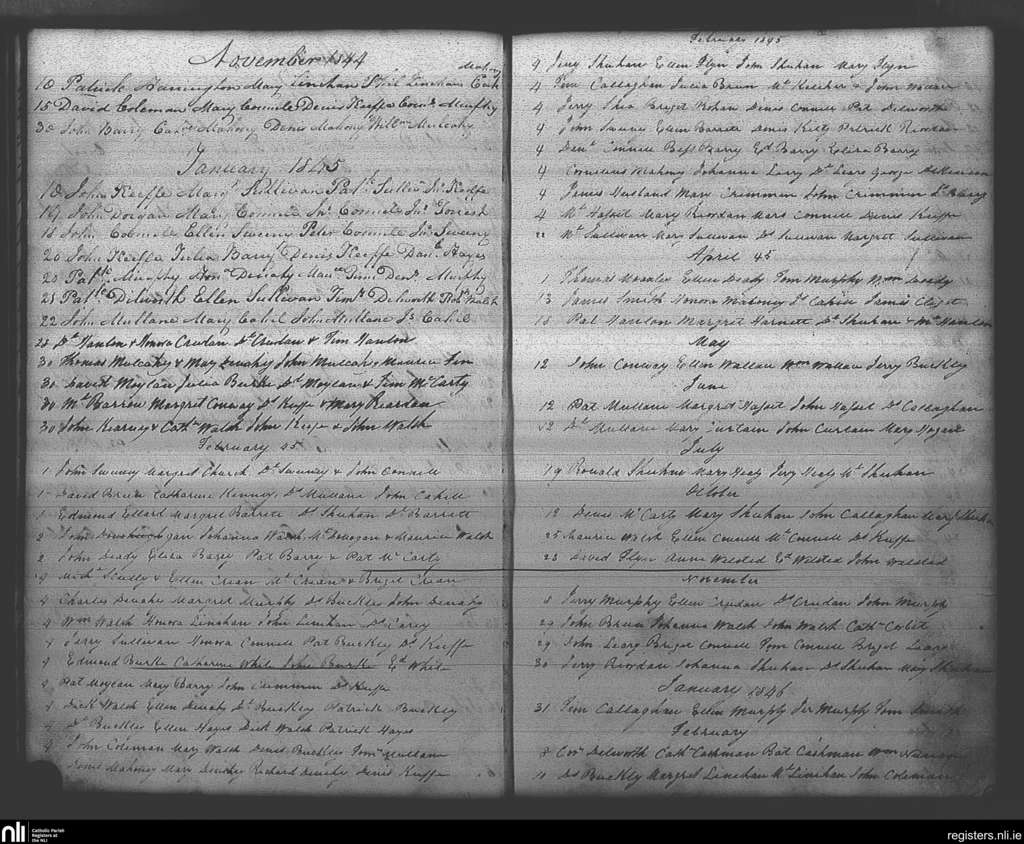 November 1844
10 Patrick Harrington Mary Linehan Phil Linehan Cath
15 David Coleman Mary Connile Denis Keeffe Corns Murphy
30 John Barry Cathe Mahony Denis Mahony Willm Mulcahy
January 1845
18 John Keeffe Margt Sullivan Patk Sullivn Jno Keeffe
19 John Dorgan Mary Connile Jno Connile Jno
18 John Connile Ellen Sweeny Peter Connile Jno Sweeny
20 John Keeffe Julia Barry Denis Keeffe Danl Hayes
20 Patk Murphy Denehy Denl Murphy
21 Patk Dilworth Ellen Sullivan Timy Dilworth Robt Walsh
22 John Mullane Mary Cahil John Mullane Js Cahil
28 Ds Hanlon & Honora Crudan Ds Crudan & Tim Hanlon
30 Thomas Mulcahy & Mary Denahy John Mulcahy Maurice
30 David Moylan Julia Burke Ds Moylan & Tim McCarty
30 Ml Barron Margret Conway Ds Keeffe & Mary Reardan
30 John Kearney & Cathe Walsh John Keeffe & John Walsh
February 45
1 John Sweeney Margret Church Ds Sweeney & John Connill
1 David Breen Catharine Kenney Ds Mullane John Cahill
1 Edmond Ellard Margret Barrett Ds Shuhan Ds Barratt
2 John Johanna Walsh Ml Donogan & Maurice Walsh
2 John Deady Eliza Barry Pat Barry & Pat McCarty
9 Michl Scully & Ellen Crean Ml Crean & Briget Crean
4 Charles Denahy Margret Murphy Ds Buckley John Denahy
4 Wm Walsh Honora Linehan John Linehan Ds Carey
4 Jerry Sullivan Honora Connell Pat Buckley Ds Keeffe
4 Edmund Burke Catharine White John Burke Ed White
4 Pat Moylan Mary Barry John Crimmin Ds Keeffe
4 Dick Walsh Ellen Denahy Ds Buckley Patrick Buckley
4 Ds Buckley Ellen Hayes Dick Walsh Patrick Hayes
4 John Coleman Mary Walsh Denis Buckley Tom Mullane
Mahoney Mary Denehy Richard Denehy Denis Keeffe
February 1845
4 Jerry Shuhan Ellen Flyn John Shuhan Mary Flyn
4 Tim Callaghan Julia Brien Ml Keleher & John
4 Jerry Shea Briget Rohan Denis Connell Pat Dilworth
4 John Sweeney Ellen Barrett Denis Patrick Riordan
4 Danl Connell Bess Barry Ed Barry Eliza Barry
4 Cornelius Mahony Johanna Leary Ds Leary George
4 James Husband Mary Crimmin John Crimmin Ds Barry
4 Ml Mary Riordan Connell Denis Keeffe
22 Ml Sullivan Mary Sullivan Ds Sullivan Margret Sullivan
April 45
1 Thomas Ellen Deady Tom Murphy Wm Deady
13 James Smith Honora Mahoney Ds Cahill James
15 Pat Hanlon Margret Harnett Ds Shuhan & Ml Hanlon
May
12 John Conway Ellen Wallace Wm Wallace Jerry Buckley
June
12 Pat Mullane Margret John Ds Callaghan
12 Ds Mullane Mary Curtain John Curtain Mary
July
19 Ronald Shuhan Mary Healy Jery Healy Ml Shuhan
October
12 Denis McCarty Mary Shuhan John Callaghan Mary Shuhan
25 Maurice Walsh Ellen Connell Ml Connell Ds Keeffe
23 David Flyn Anne Welsted Ed Welsted John Welsted
November
8 Jerry Murphy Ellen Crudan Ds Crudan John Murphy
29 John Brien Johanna Walsh John Walsh Cath
29 John Leary Briget Connell Tom Connell Briget Leary
30 Jery Riordan Johanna Shuhan Ds Shuhan Mary Shuhan
January 1846
31 Tim Callaghan Ellen Murphy Jer Murphy Tom Smith
February
8 Cors Dilworth Cath Cashman Bat Cashman Wm
10 Ds Buckley Margret Linehan Ml Linehan John Coleman
nli
Catholic Parish
Registers at
the NLI
registers.nli.ie